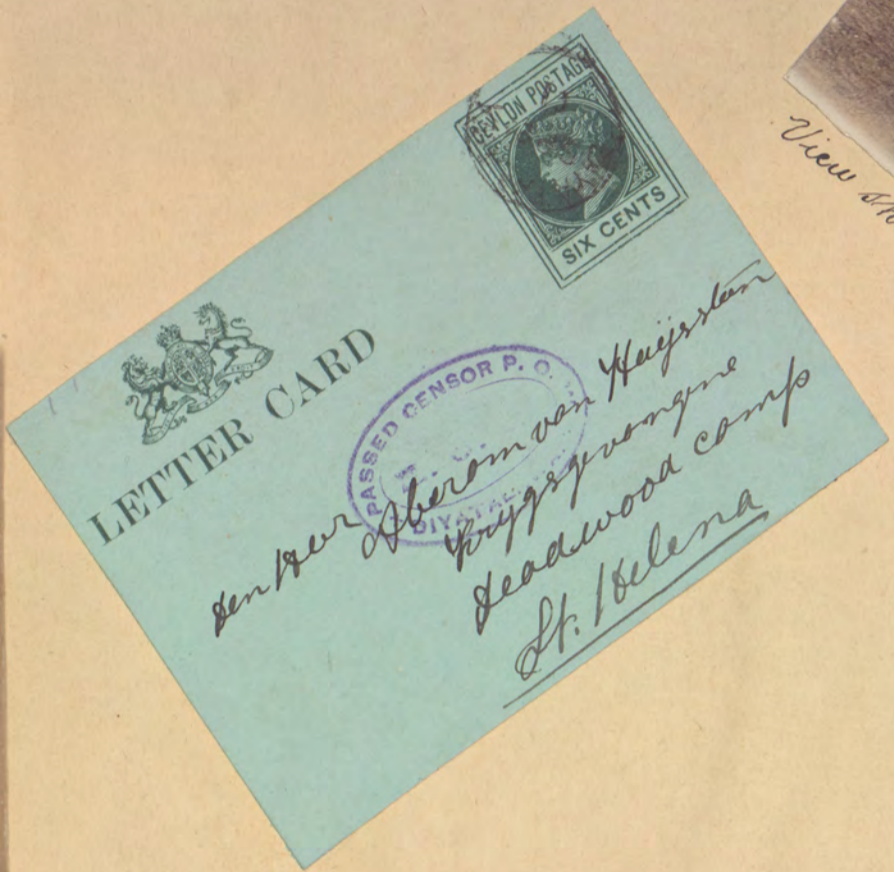 CEYLON POSTAGE
SIX CENTS
LETTER CARD
PASSED CENSOR P. O.
den Heer Aberam van Huijssten
Krygsgevangne
Deadwood camp
St. Helena
View